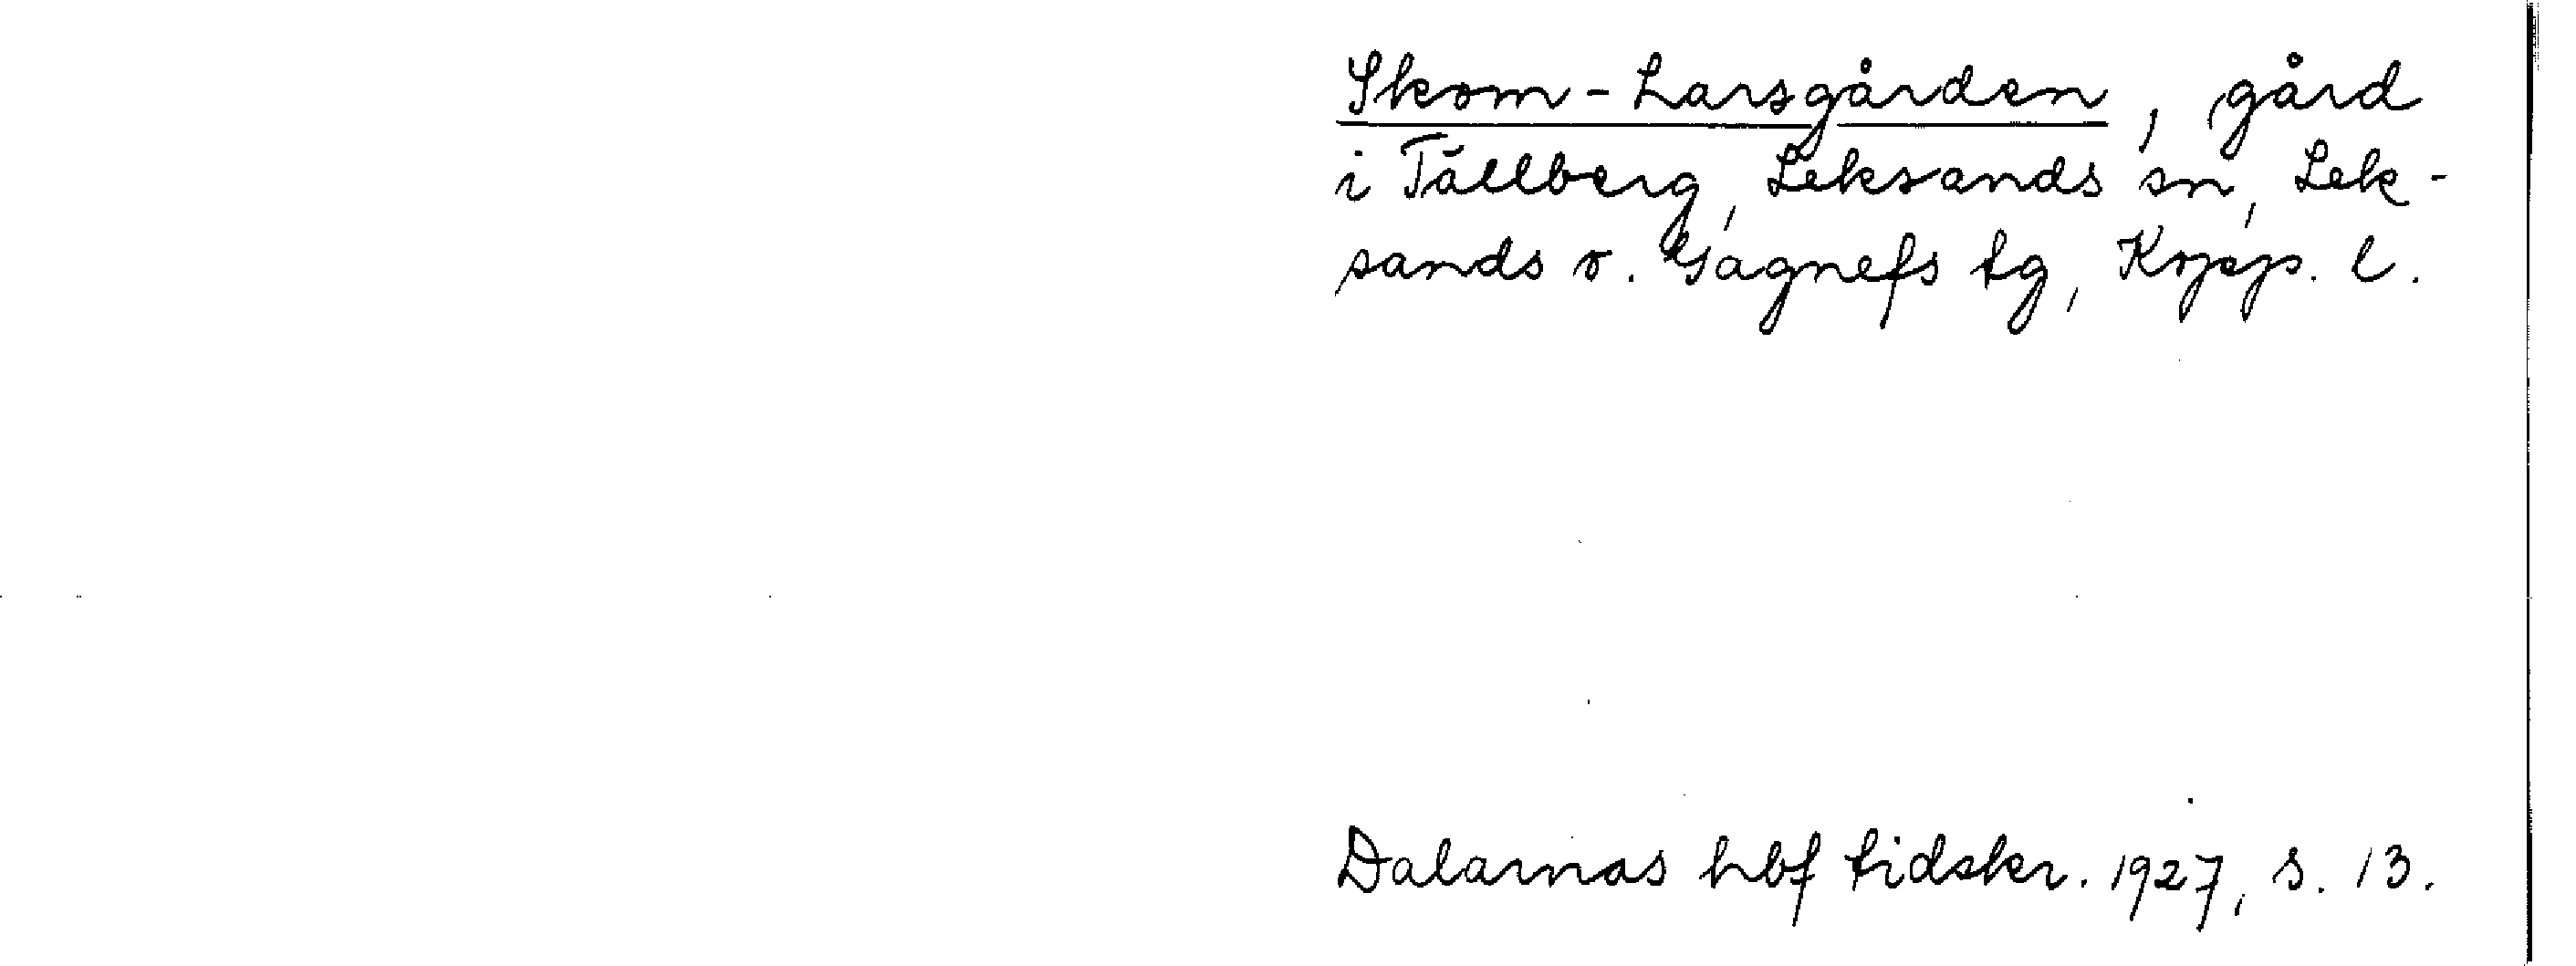 Skom-Larsgården, gård
i Tällberg, Leksands sn, Lek-
sands o. Gagnefs tg, Kopp. l.
Dalarnas hbf tidskr. 1927, s. 13.